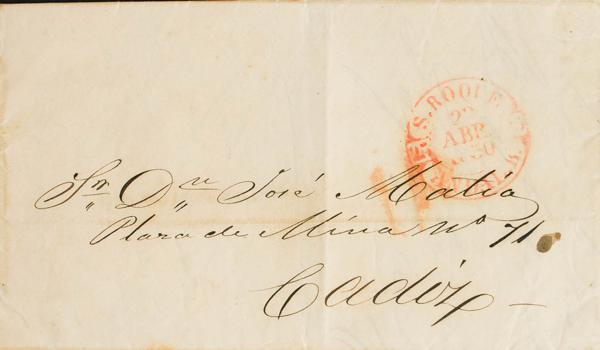 S. ROQUE
22
ABR
1850
Sr. Dn. José Matia
Plaza de Mina No 71
Cadiz